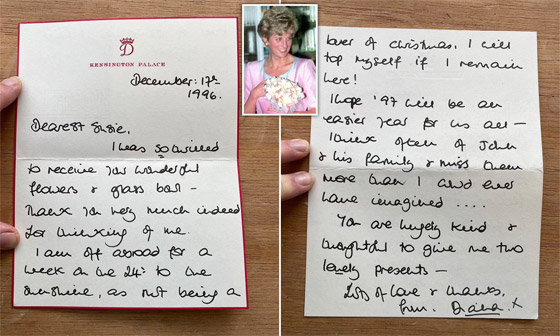 D
KENSINGTON PALACE
December: 17th
1996.
Dearest Susie,
I was so thrilled
to receive your wonderful
flowers & glass ball –
Thank you very much indeed
for thinking of me.
I am off abroad for a
week on the 24th to the
sunshine, as not being a
lover of Christmas, I will
top myself if I remain
here!
I hope '97 will be an
easier year for us all –
I think often of John
& his family & miss them
more than I could ever
have imagined ....
You are hugely kind &
thoughtful to give me two
lovely presents –
Lots of love & thanks,
from Diana. x